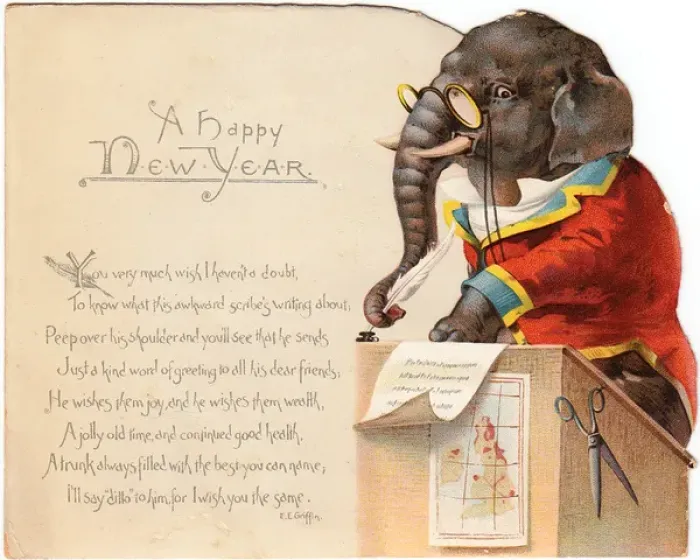 A Happy
New Year.
You very much wish I haven't a doubt,
To know what this awkward scribe's writing about,
Peep over his shoulder and you'll see that he sends
Just a kind word of greeting to all his dear friends;
He wishes them joy, and he wishes them wealth,
A jolly old time, and continued good health.
A trunk always filled with the best you can name;
I'll say "ditto" to him, for I wish you the same.
E.E. Griffin.